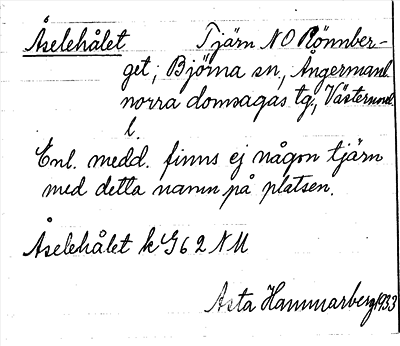 Åselehålet Tjärn NO Rönnber-
get; Björna sn, Ångermanl.
norra domsagas tg., Västernorrl.
l.
Enl. medd. finns ej någon tjärn
med detta namn på platsen.
Åselehålet k G62 NM
Asta Hammarberg 1933